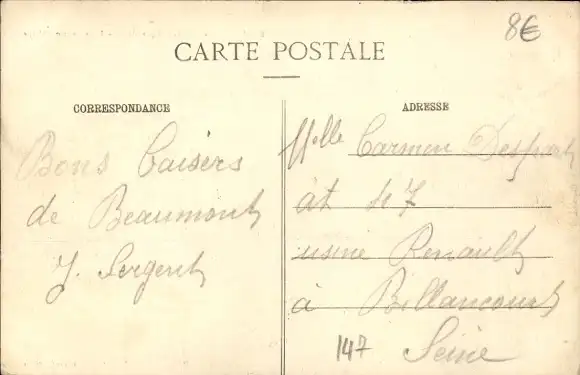 8€
CARTE POSTALE
CORRESPONDANCE
Bons Baisers
de Beaumont
J. Sergent
ADRESSE
Melle Carmen
at 47
usine Renault
à Billancourt
Seine
147